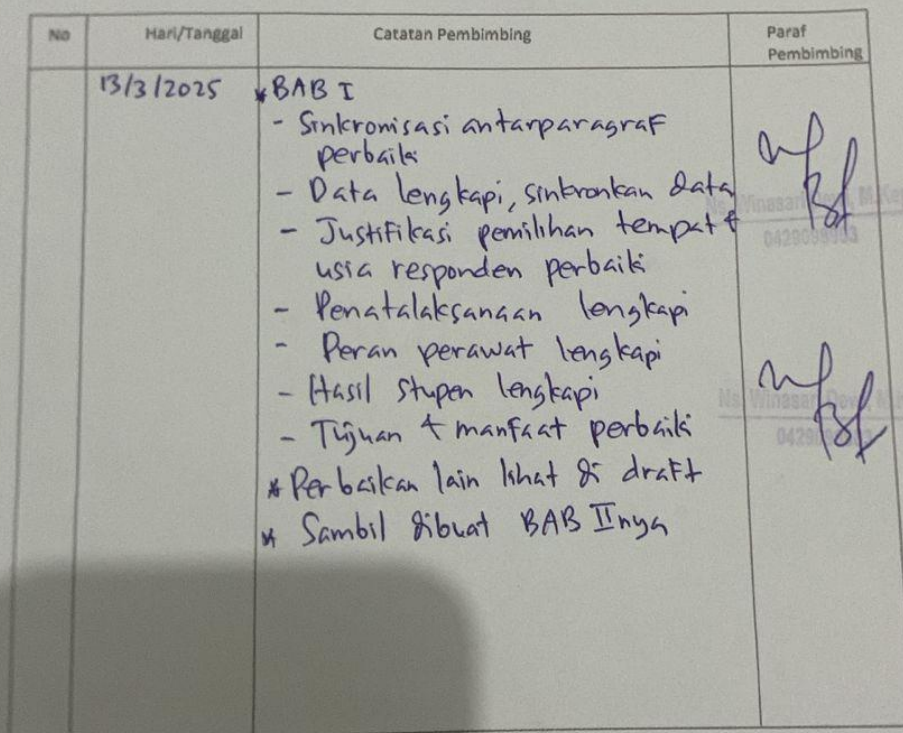 No Hari/Tanggal Catatan Pembimbing Paraf Pembimbing
13/3/2025 * BAB I
- Sinkronisasi antarparagraf
perbaiki
- Data lengkapi, sinkronkan data
- Justifikasi pemilihan tempat &
usia responden perbaiki
- Penatalaksanaan lengkapi
- Peran perawat lengkapi
- Hasil stupen lengkapi
- Tujuan & manfaat perbaiki
* Perbaikan lain lihat di draft
* Sambil dibuat BAB II nya
Ns. Winasari Dewi, M.Kep
Ns. Winasari Dewi, M.